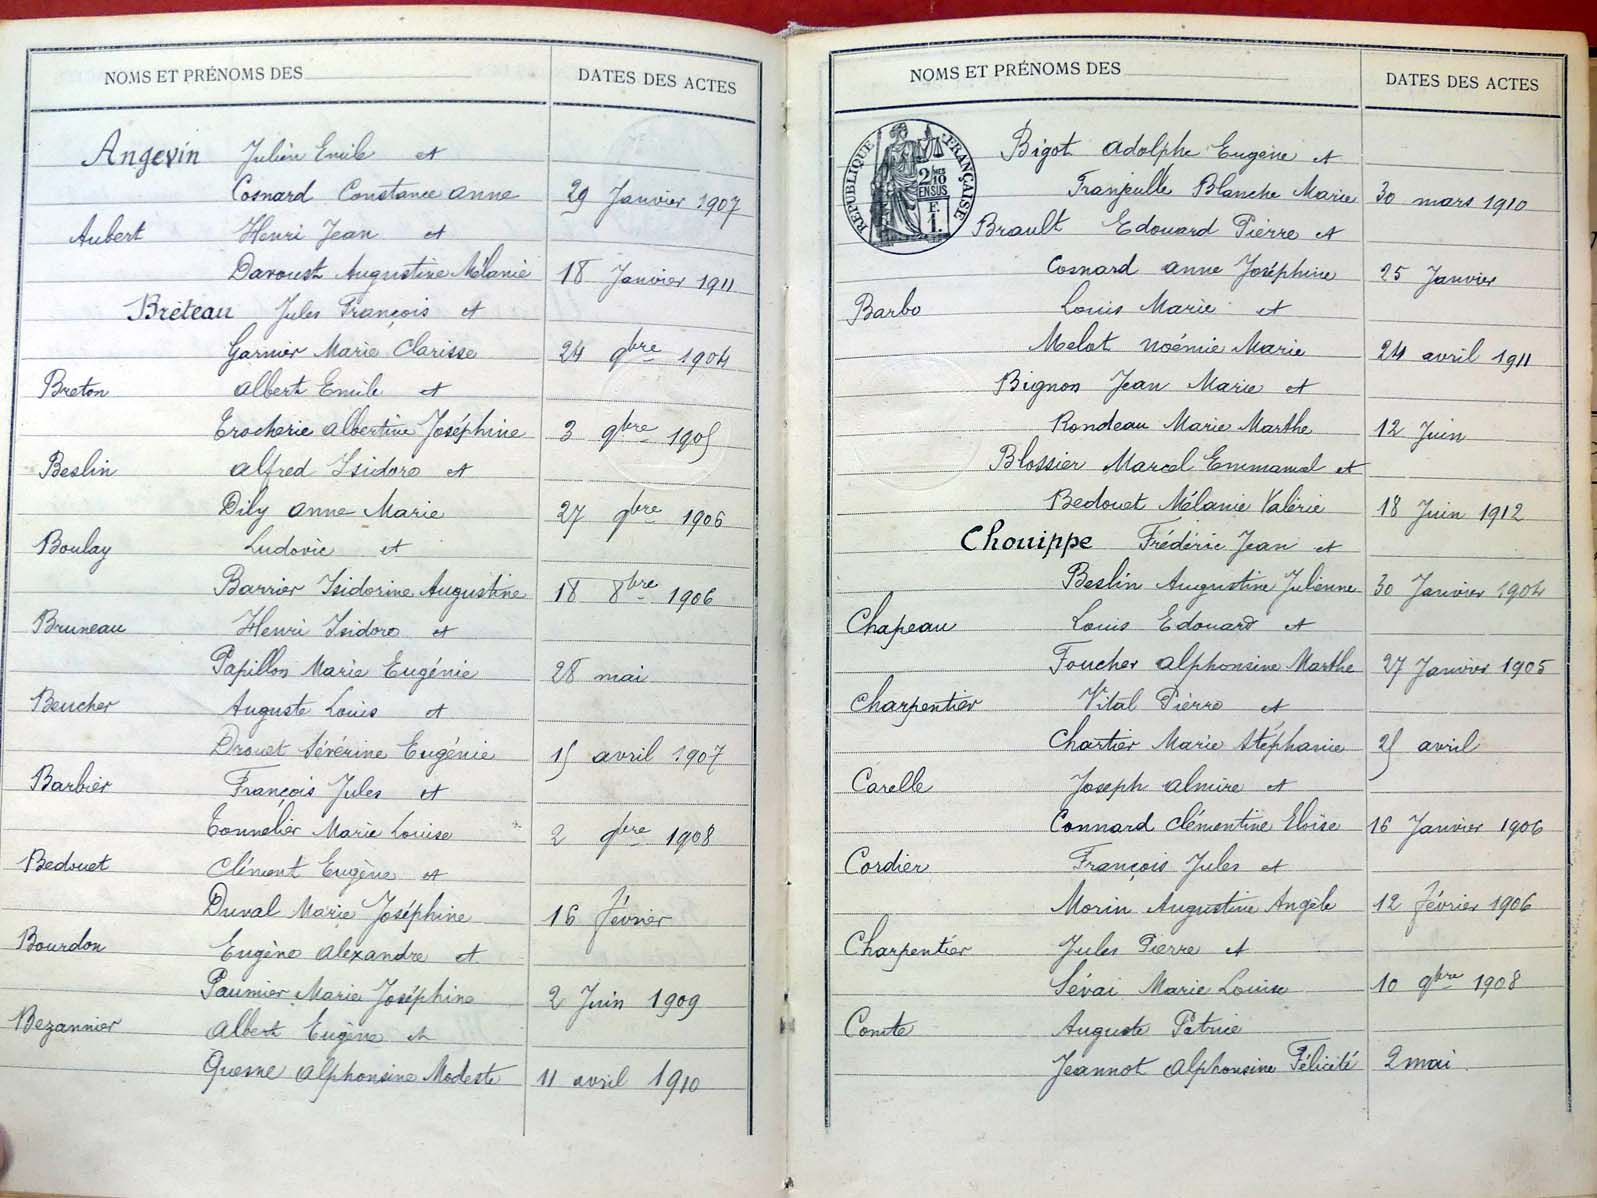 NOMS ET PRÉNOMS DES
DATES DES ACTES
Angevin Julien Emile et
Cosnard Constance Anne 29 Janvier 1907
Aubert Henri Jean et
Davoust Augustine Mélanie 18 Janvier 1911
Bréteau Jules François et
Garnier Marie Clarisse 24 9bre 1904
Breton Albert Emile et
Erocherie Albertine Joséphine 3 9bre 1905
Beslin Alfred Isidore et
Dily Anne Marie 27 9bre 1906
Boulay Ludovic et
Barrier Isidorine Augustine 18 8bre 1906
Bruneau Henri Isidore et
Papillon Marie Eugénie 28 mai
Beucher Auguste Louis et
Drouet Séverine Eugénie 15 avril 1907
Barbier François Jules et
Tonnelier Marie Louise 2 9bre 1908
Bedouet Clément Eugène et
Duval Marie Joséphine 16 février
Bourdon Eugène Alexandre et
Paumier Marie Joséphine 2 Juin 1909
Bezannier Albert Eugène et
Quesne Alphonsine Modeste 11 avril 1910
NOMS ET PRÉNOMS DES
DATES DES ACTES
RÉPUBLIQUE FRANÇAISE
2/10
EN SUS
E.
1.
Bigot Adolphe Eugène et
Blanche Marie 30 mars 1910
Brault Edouard Pierre et
Cosnard Anne Joséphine 25 Janvier
Barbo Louis Marie et
Melot Noémie Marie 24 avril 1911
Bignon Jean Marie et
Rondeau Marie Marthe 12 Juin
Blossier Marcel Emmanuel et
Bedouet Mélanie Valérie 18 Juin 1912
Chouippe Frédéric Jean et
Beslin Augustine Julienne 30 Janvier 1904
Chapeau Louis Edouard et
Foucher Alphonsine Marthe 27 Janvier 1905
Charpentier Vital Pierre et
Chartier Marie Stéphanie 25 avril
Carelle Joseph Almire et
Connard Clémentine Eloïse 16 Janvier 1906
Cordier François Jules et
Morin Augustine Angèle 12 février 1906
Charpentier Jules Pierre et
Sévai Marie Louise 10 9bre 1908
Comte Auguste Patrice
Jeannot Alphonsine Félicité 2 mai